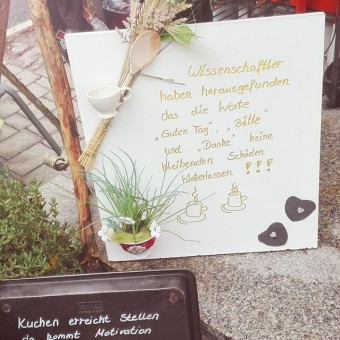 Wissenschaftler
haben herausgefunden
das die Worte
„Guten Tag", „Bitte"
und „Danke" keine
bleibenden Schäden
hinterlassen !!!
Kuchen erreicht Stellen
da kommt Motivation